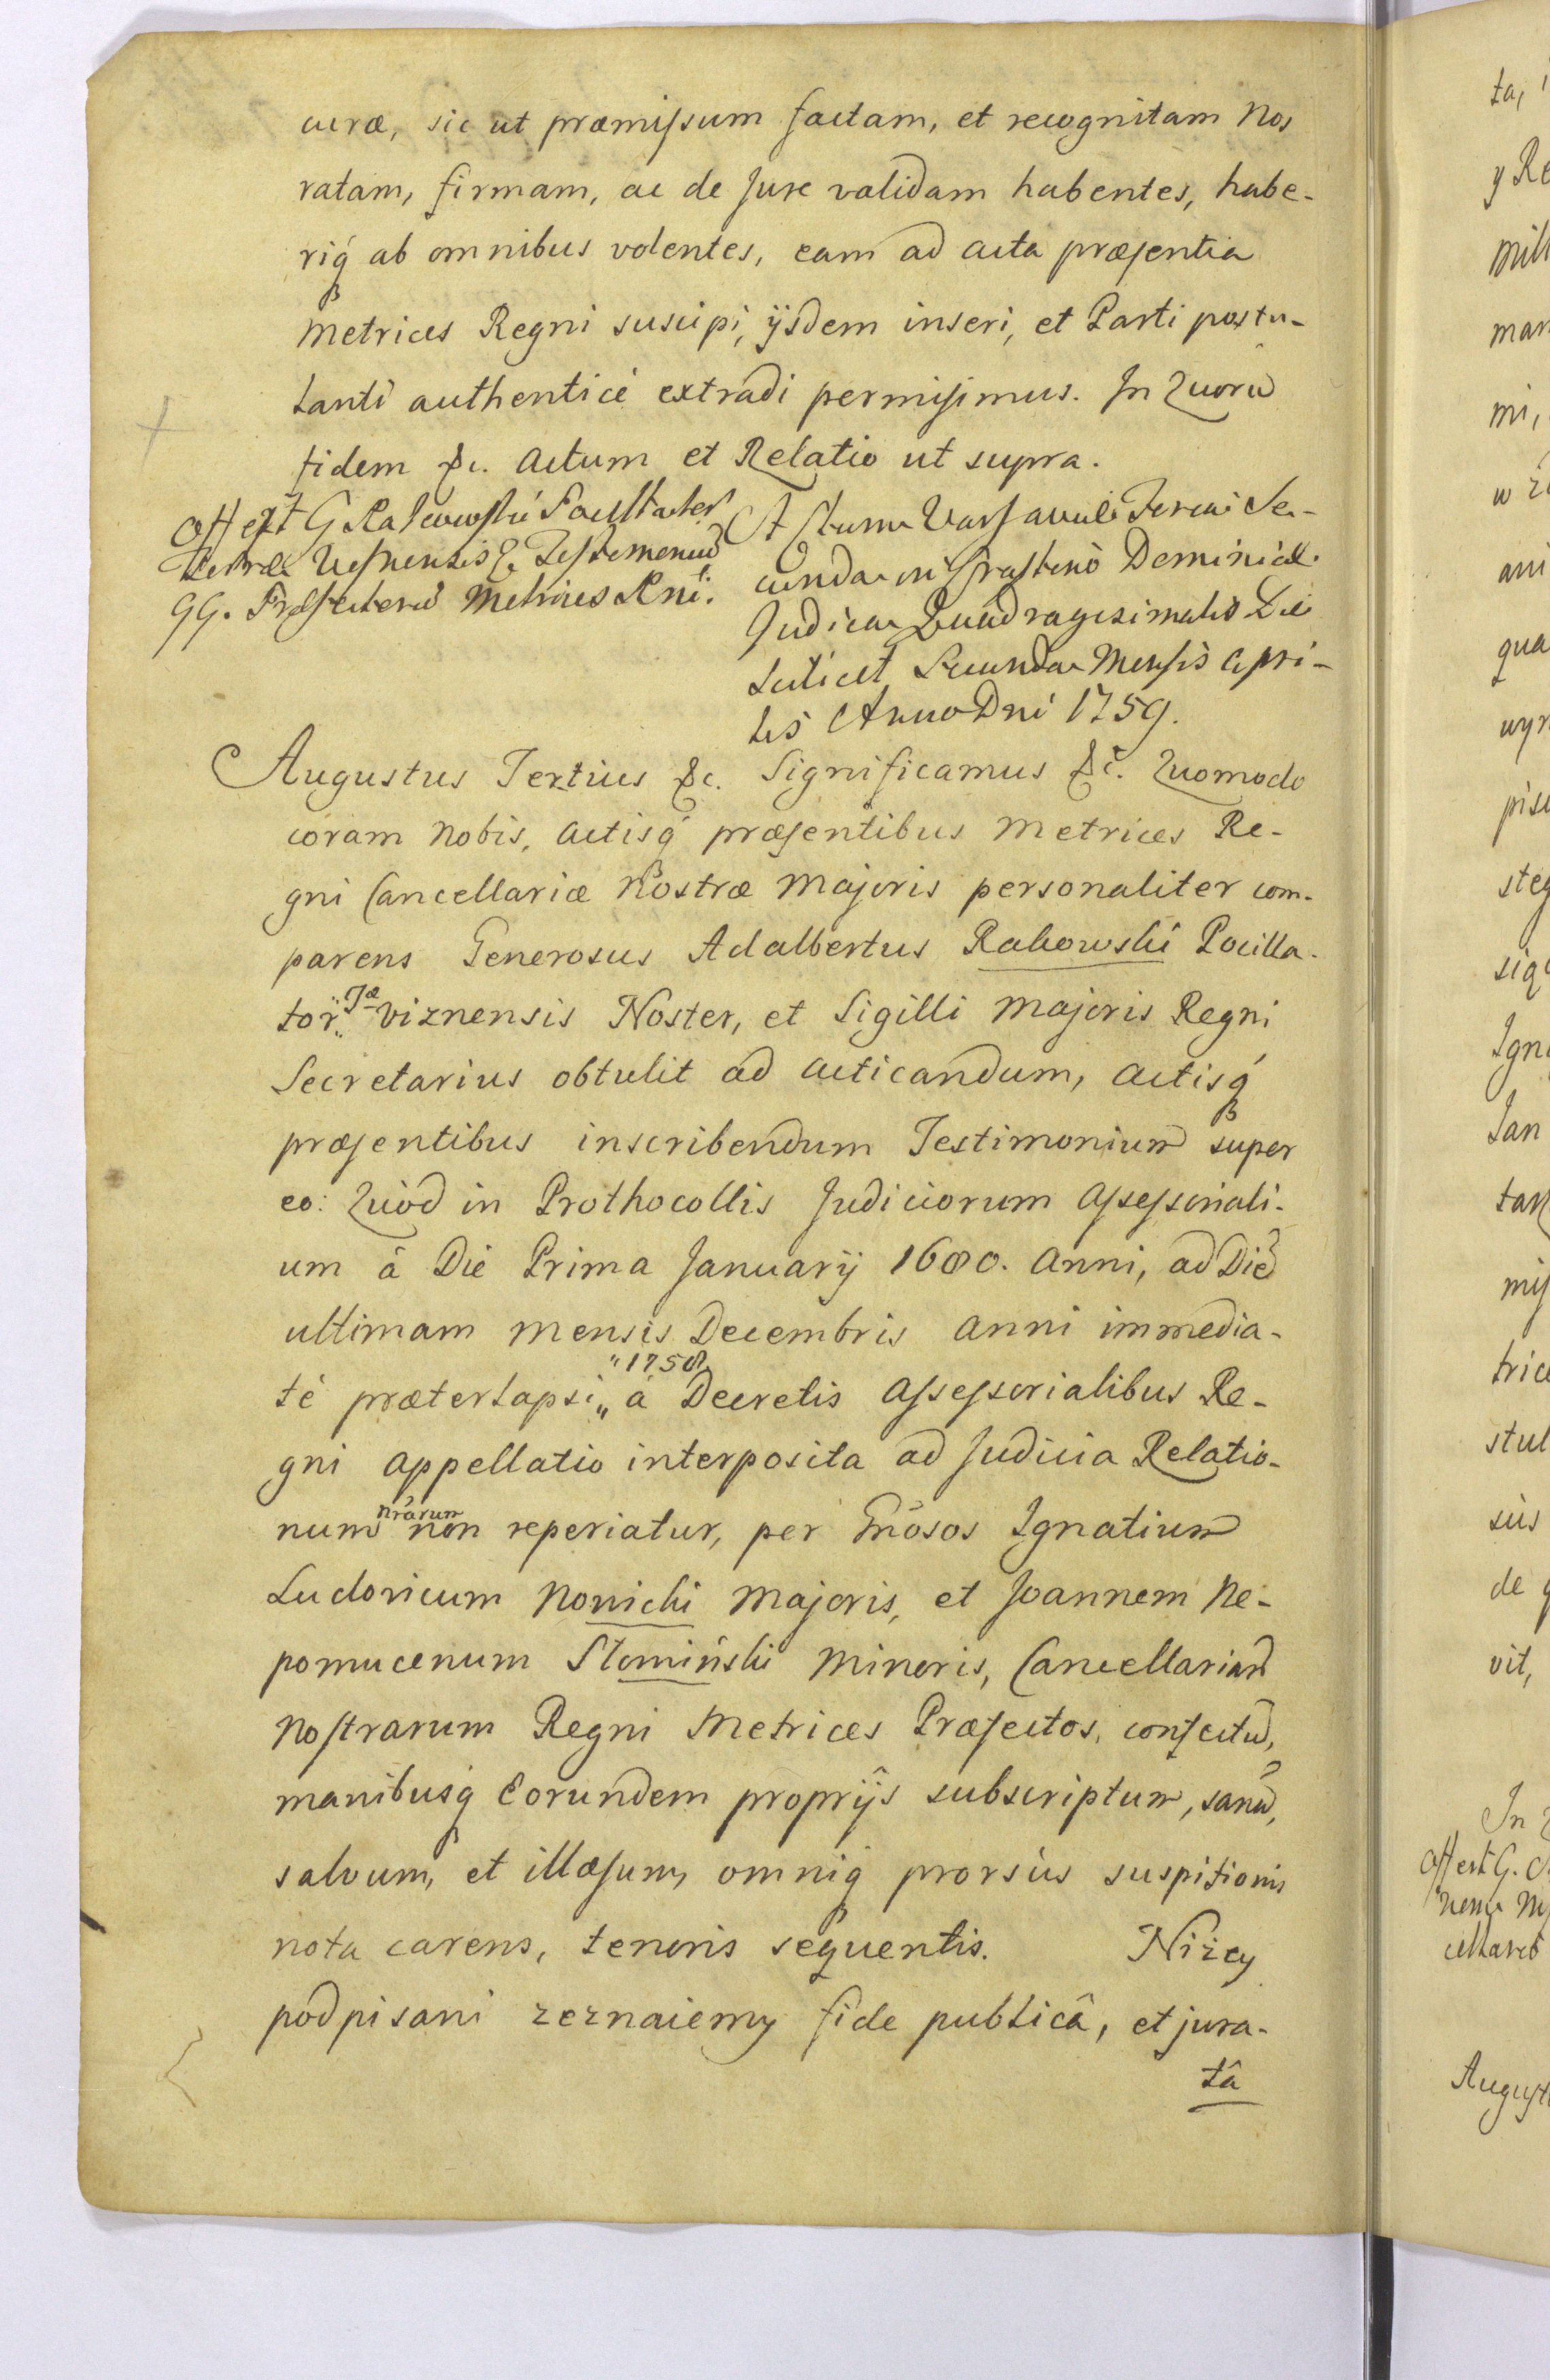 curæ, sic ut præmissum factam, et recognitam Nos
ratam, firmam, ac de Jure validam habentes, habe-
riq́ ab omnibus volentes, eam ad acta præsentia
Metrices Regni suscipi, ijsdem inseri, et Parti postu-
lanti authenticè extradi permisimus. In Quorū
fidem &c. Actum et Relatio ut supra.
Offert G Rakowski
Terræ Viznensis Testimoniū
GG. Præfectorū Metrices Rni.
Actum Varsaviæ Feria Se-
cunda in Crastino Dominicæ
Judica Quadragesimalis Die
scilicet Secunda Mensis Apri-
lis Anno Dni 1759.
Augustus Tertius &c. Significamus &c. Quomodo
coram Nobis, Actisq́ præsentibus Metrices Re-
gni Cancellariæ Nostræ Majoris personaliter com-
parens Generosus Adalbertus Rakowski Pocilla-
tor Tæ Viznensis Noster, et Sigilli Majoris Regni
Secretarius obtulit ad acticandum, Actisq́
præsentibus inscribendum Testimonium super
eo: Quod in Prothocollis Judiciorum Assessoriali-
um à Die Prima Januarij 1680. Anni, ad Diē
ultimam Mensis Decembris Anni immedia-
tè præterlapsi "1758 à Decretis Assessorialibus Re-
gni Appellatio interposita ad Judicia Relatio-
num nrarum non reperiatur, per Gnosos Ignatium
Ludovicum Nowicki Majoris, et Joannem Ne-
pomucenum Słomiński Minoris, Cancellariarū
Nostrarum Regni Metrices Præfectos, confectū,
manibusq́ Eorundem proprijs subscriptum, sanū,
salvum, et illæsum, omniq́ prorsùs suspitionis
nota carens, tenoris sequentis. Niżey
podpisani zeznaiemy fide publicâ, et jura-
tâ